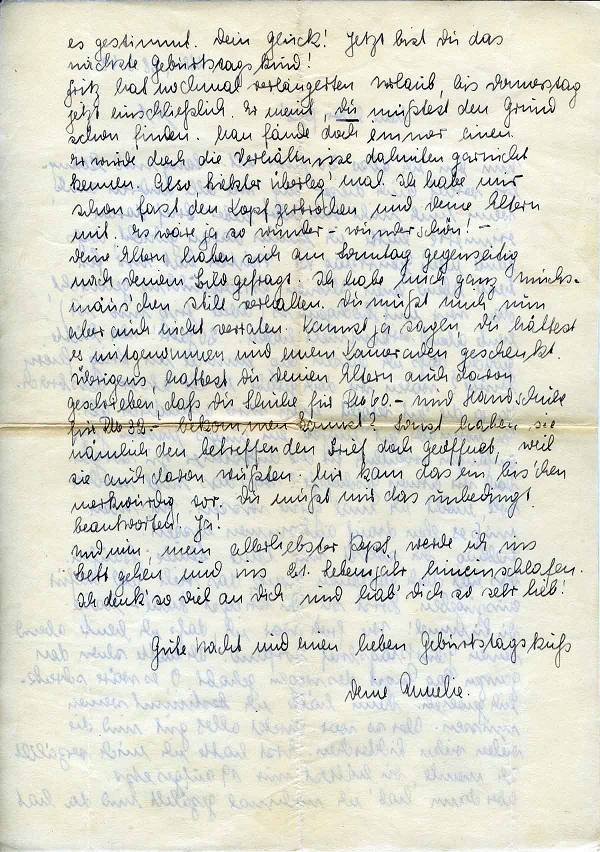 es gestimmt. Dein Glück! Jetzt bist Du das
nächste Geburtstagskind!
Fritz hat nochmal verlängerten Urlaub, bis Donnerstag
jetzt einschließlich. Er meint, Du müßtest den Grund
schon finden. Man fände doch immer einen.
Er würde doch die Verhältnisse dahinten garnicht
kennen. Also überleg' mal. Ich habe mir
schon fast den Kopf zerbrochen und deine Eltern
mit. Es wäre ja so wunder-wunderschön! –
Deine Eltern haben sich am Sonntag gegenseitig
nach deinem Bild gefragt. Ich habe mich ganz mucks-
mäus'chen still verhalten. Du mußt mich nun
aber auch nicht verraten. Kannst ja sagen, du hättest
es mitgenommen und einem Kameraden geschenkt.
Übrigens, hattest du deinen Eltern auch davon
geschrieben, daß du Schuhe für 60.– und Handschuhe
für 32.– bekommen kannst? Sonst haben sie
nämlich den betreffenden Brief doch geöffnet, weil
sie auch davon wüßten. Mir kam das ein bis'chen
merkwürdig vor. Du mußt mir das unbedingt
beantworten! Ja!
Und nun, mein allerliebster, werde ich ins
Bett gehen und ins 21. Lebensjahr hineinschlafen.
Ich denk' so viel an dich und hab' dich so sehr lieb!
Gute Nacht und einen lieben Geburtstagskuß
Deine Annelie.